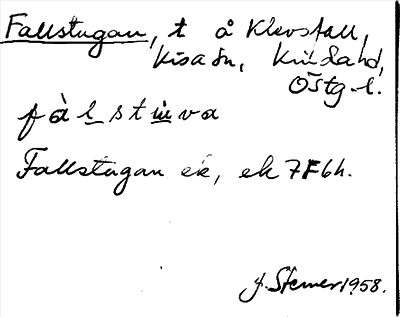 Fallstugan, t å Klevsfall,
Kisa sn, Kinda hd,
Östg. l.
fàlstu̇va
Fallstugan ek, ek 7F6h.
J. Sterner 1958.